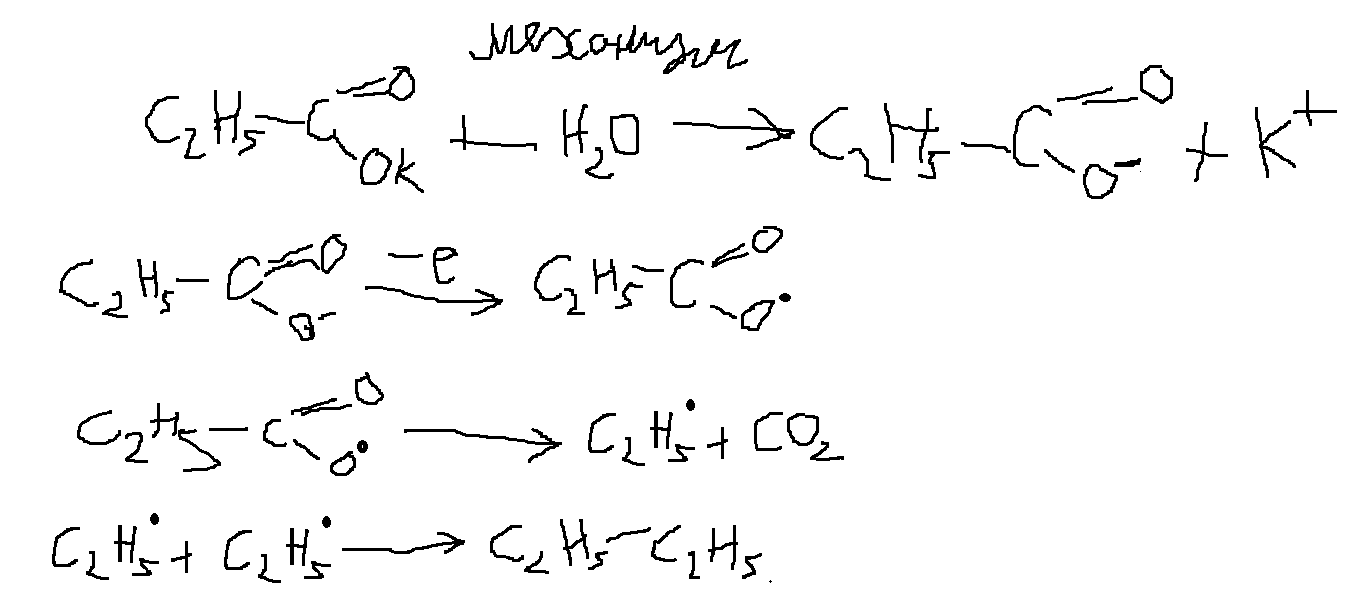 механизм
C₂H₅–C(=O)OK + H₂O → C₂H₅–C(=O)O⁻ + K⁺
C₂H₅–C(=O)O⁻ –e→ C₂H₅–C(=O)O•
C₂H₅–C(=O)O• → C₂H₅• + CO₂
C₂H₅• + C₂H₅• → C₂H₅–C₂H₅